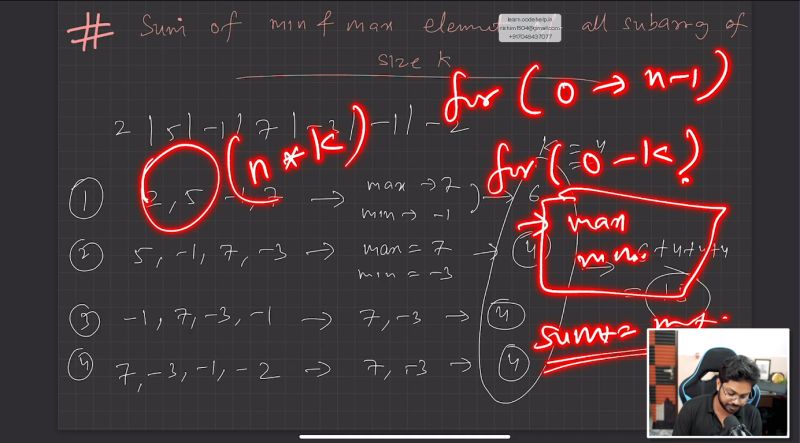 # Sum of min & max elemen all subarray of
learn.codehelp.in
+917048437077
size k
for (0 → n-1)
2 | 5 | -1 | 7 | -3 | -1 | -2
(n * k)
k = 4
for (0 - k)
① 2, 5, -1, 7 → max → 7 → 6
min → -1
max
② 5, -1, 7, -3 → max = 7 → 4
min = -3
min.
+ 4 + 4 + 4
= 18
③ -1, 7, -3, -1 → 7, -3 → 4
sum+=
④ 7, -3, -1, -2 → 7, -3 → 4